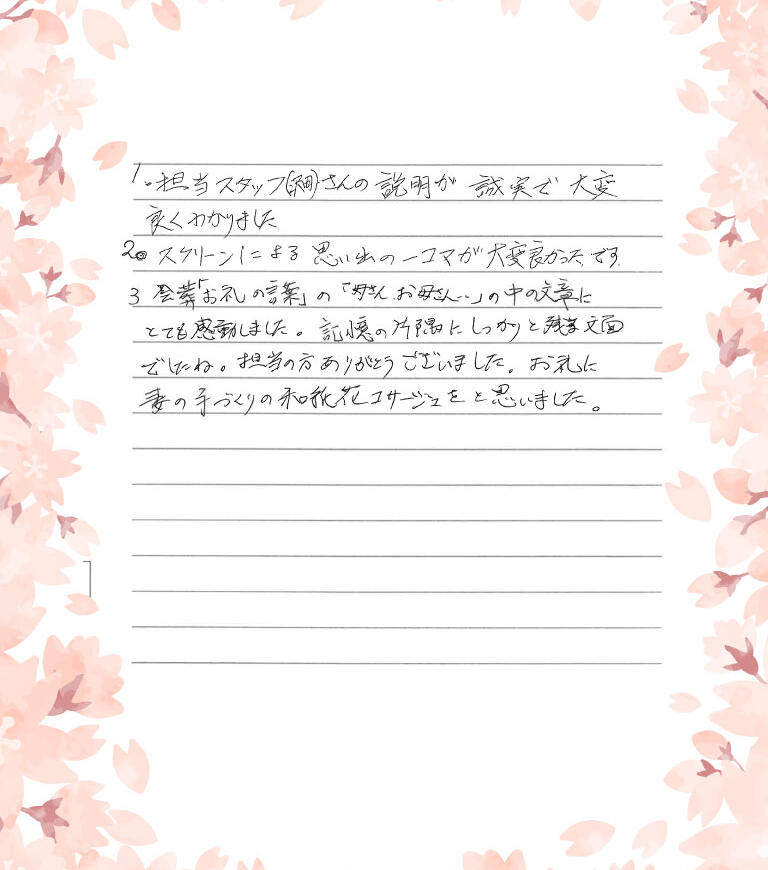 1. 担当スタッフ()さんの説明が 誠実で 大変
良くわかりました
2. スクリーンによる 思い出の一コマが 大変良かったです.
3 会葬「お礼の言葉」の「母さん、お母さん…」の中の文章に
とても感動しました。記憶の片隅にしっかりと残る文面
でしたね。担当の方ありがとうございました。お礼に
妻の手づくりの和紙花コサージュをと思いました。